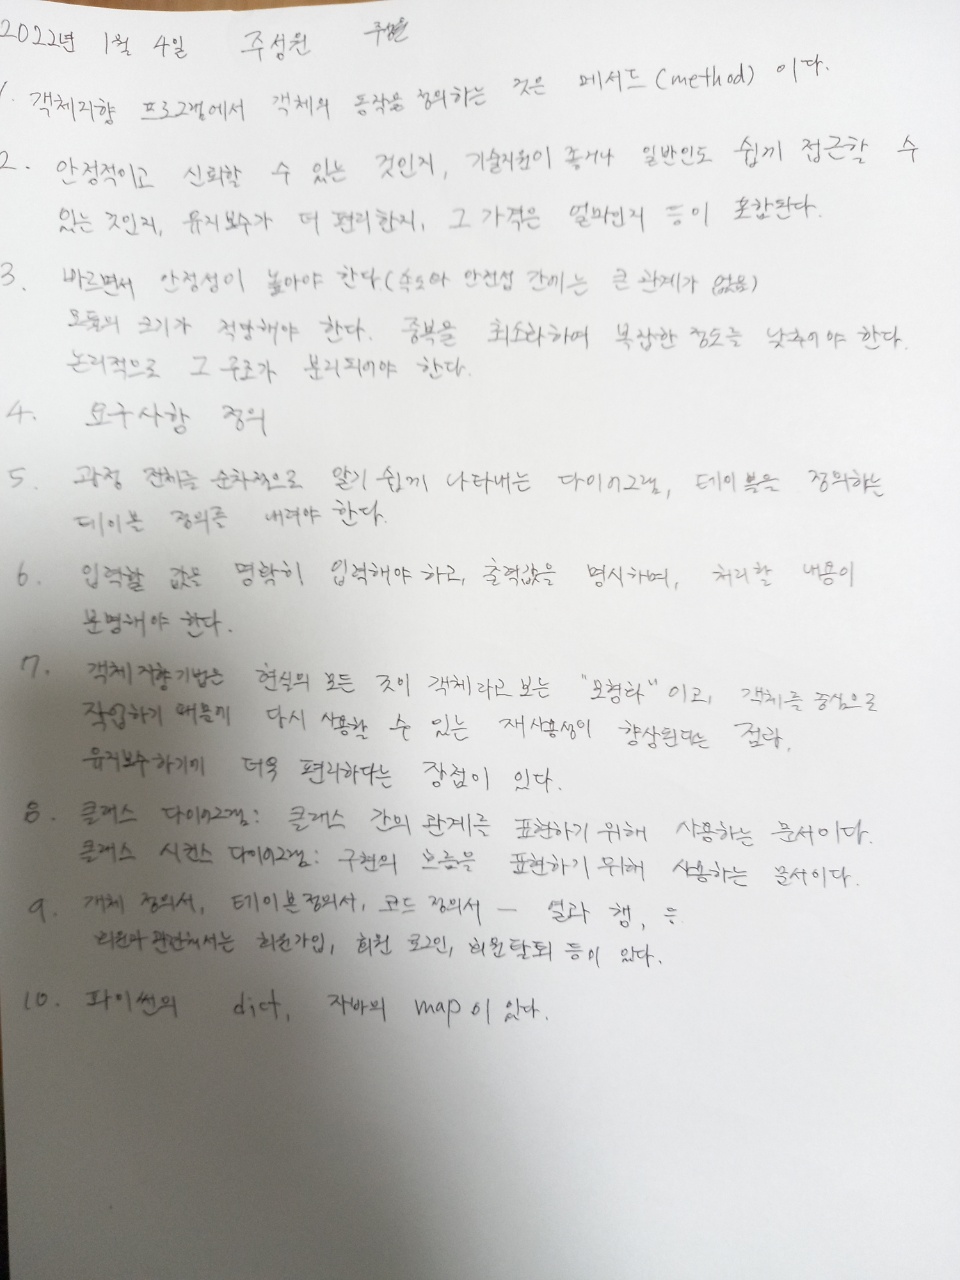 2022년 1월 4일 주성원 주성원
1. 객체지향 프로그램에서 객체의 동작을 정의하는 것은 메서드(method) 이다.
2. 안정적이고 신뢰할 수 있는 것인지, 기술지원이 좋거나 일반인도 쉽게 접근할 수
있는 것인지, 유지보수가 더 편리한지, 그 가격은 얼마인지 등이 포함된다.
3. 빠르면서 안정성이 높아야 한다.(속도와 안전성 간에는 큰 관계가 없음)
모듈의 크기가 적당해야 한다. 중복을 최소화하여 복잡한 정도를 낮추어야 한다.
논리적으로 그 구조가 분리되어야 한다.
4. 요구사항 정의
5. 과정 전체를 순차적으로 알기 쉽게 나타내는 다이어그램, 테이블을 정의하는
테이블 정의를 내려야 한다.
6. 입력할 값을 명확히 입력해야 하고, 출력값을 명시하며, 처리할 내용이
분명해야 한다.
7. 객체지향기법은 현실의 모든 것이 객체라고 보는 "모형화" 이고, 객체를 중심으로
작업하기 때문에 다시 사용할 수 있는 재사용성이 향상된다는 점과,
유지보수하기에 더욱 편리하다는 장점이 있다.
8. 클래스 다이어그램: 클래스 간의 관계를 표현하기 위해 사용하는 문서이다.
클래스 시퀀스 다이어그램: 구현의 흐름을 표현하기 위해 사용하는 문서이다.
9. 개체 정의서, 테이블정의서, 코드 정의서 - 열과 행, 등
회원과 관련해서는 회원가입, 회원 로그인, 회원탈퇴 등이 있다.
10. 파이썬의 dict, 자바의 map이 있다.